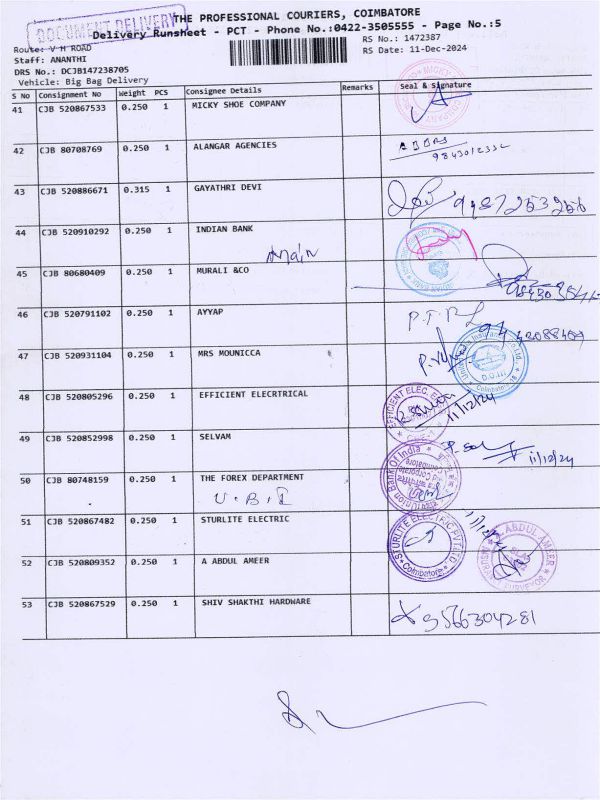 DOCUMENT DELIVERY
THE PROFESSIONAL COURIERS, COIMBATORE
Delivery Runsheet - PCT - Phone No.:0422-3505555 - Page No.:5
Route: V H ROAD
RS No.: 1472387
Staff: ANANTHI
RS Date: 11-Dec-2024
DRS No.: DCJB147238705
Vehicle: Big Bag Delivery
S No Consignment No Weight PCS Consignee Details Remarks Seal & Signature
41 CJB 520867533 0.250 1 MICKY SHOE COMPANY
42 CJB 80708769 0.250 1 ALANGAR AGENCIES
43 CJB 520886671 0.315 1 GAYATHRI DEVI
44 CJB 520910292 0.250 1 INDIAN BANK
Main
45 CJB 80680409 0.250 1 MURALI &CO
46 CJB 520791102 0.250 1 AYYAP
47 CJB 520931104 0.250 1 MRS MOUNICCA
48 CJB 520805296 0.250 1 EFFICIENT ELECRTRICAL
11/12/24
49 CJB 520852998 0.250 1 SELVAM
11/12/24
50 CJB 80748159 0.250 1 THE FOREX DEPARTMENT
U.B.I
Union Bank Of India
51 CJB 520867482 0.250 1 STURLITE ELECTRIC
STURLITE ELECTRIC PVT LTD
Coimbatore
52 CJB 520809352 1 0.250 A ABDUL AMEER
A ABDUL AMEER
SURVEYOR
53 CJB 520867529 0.250 1 SHIV SHAKTHI HARDWARE